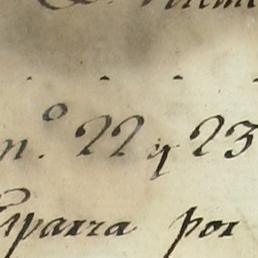 n.º 22 y 23
Esparza por